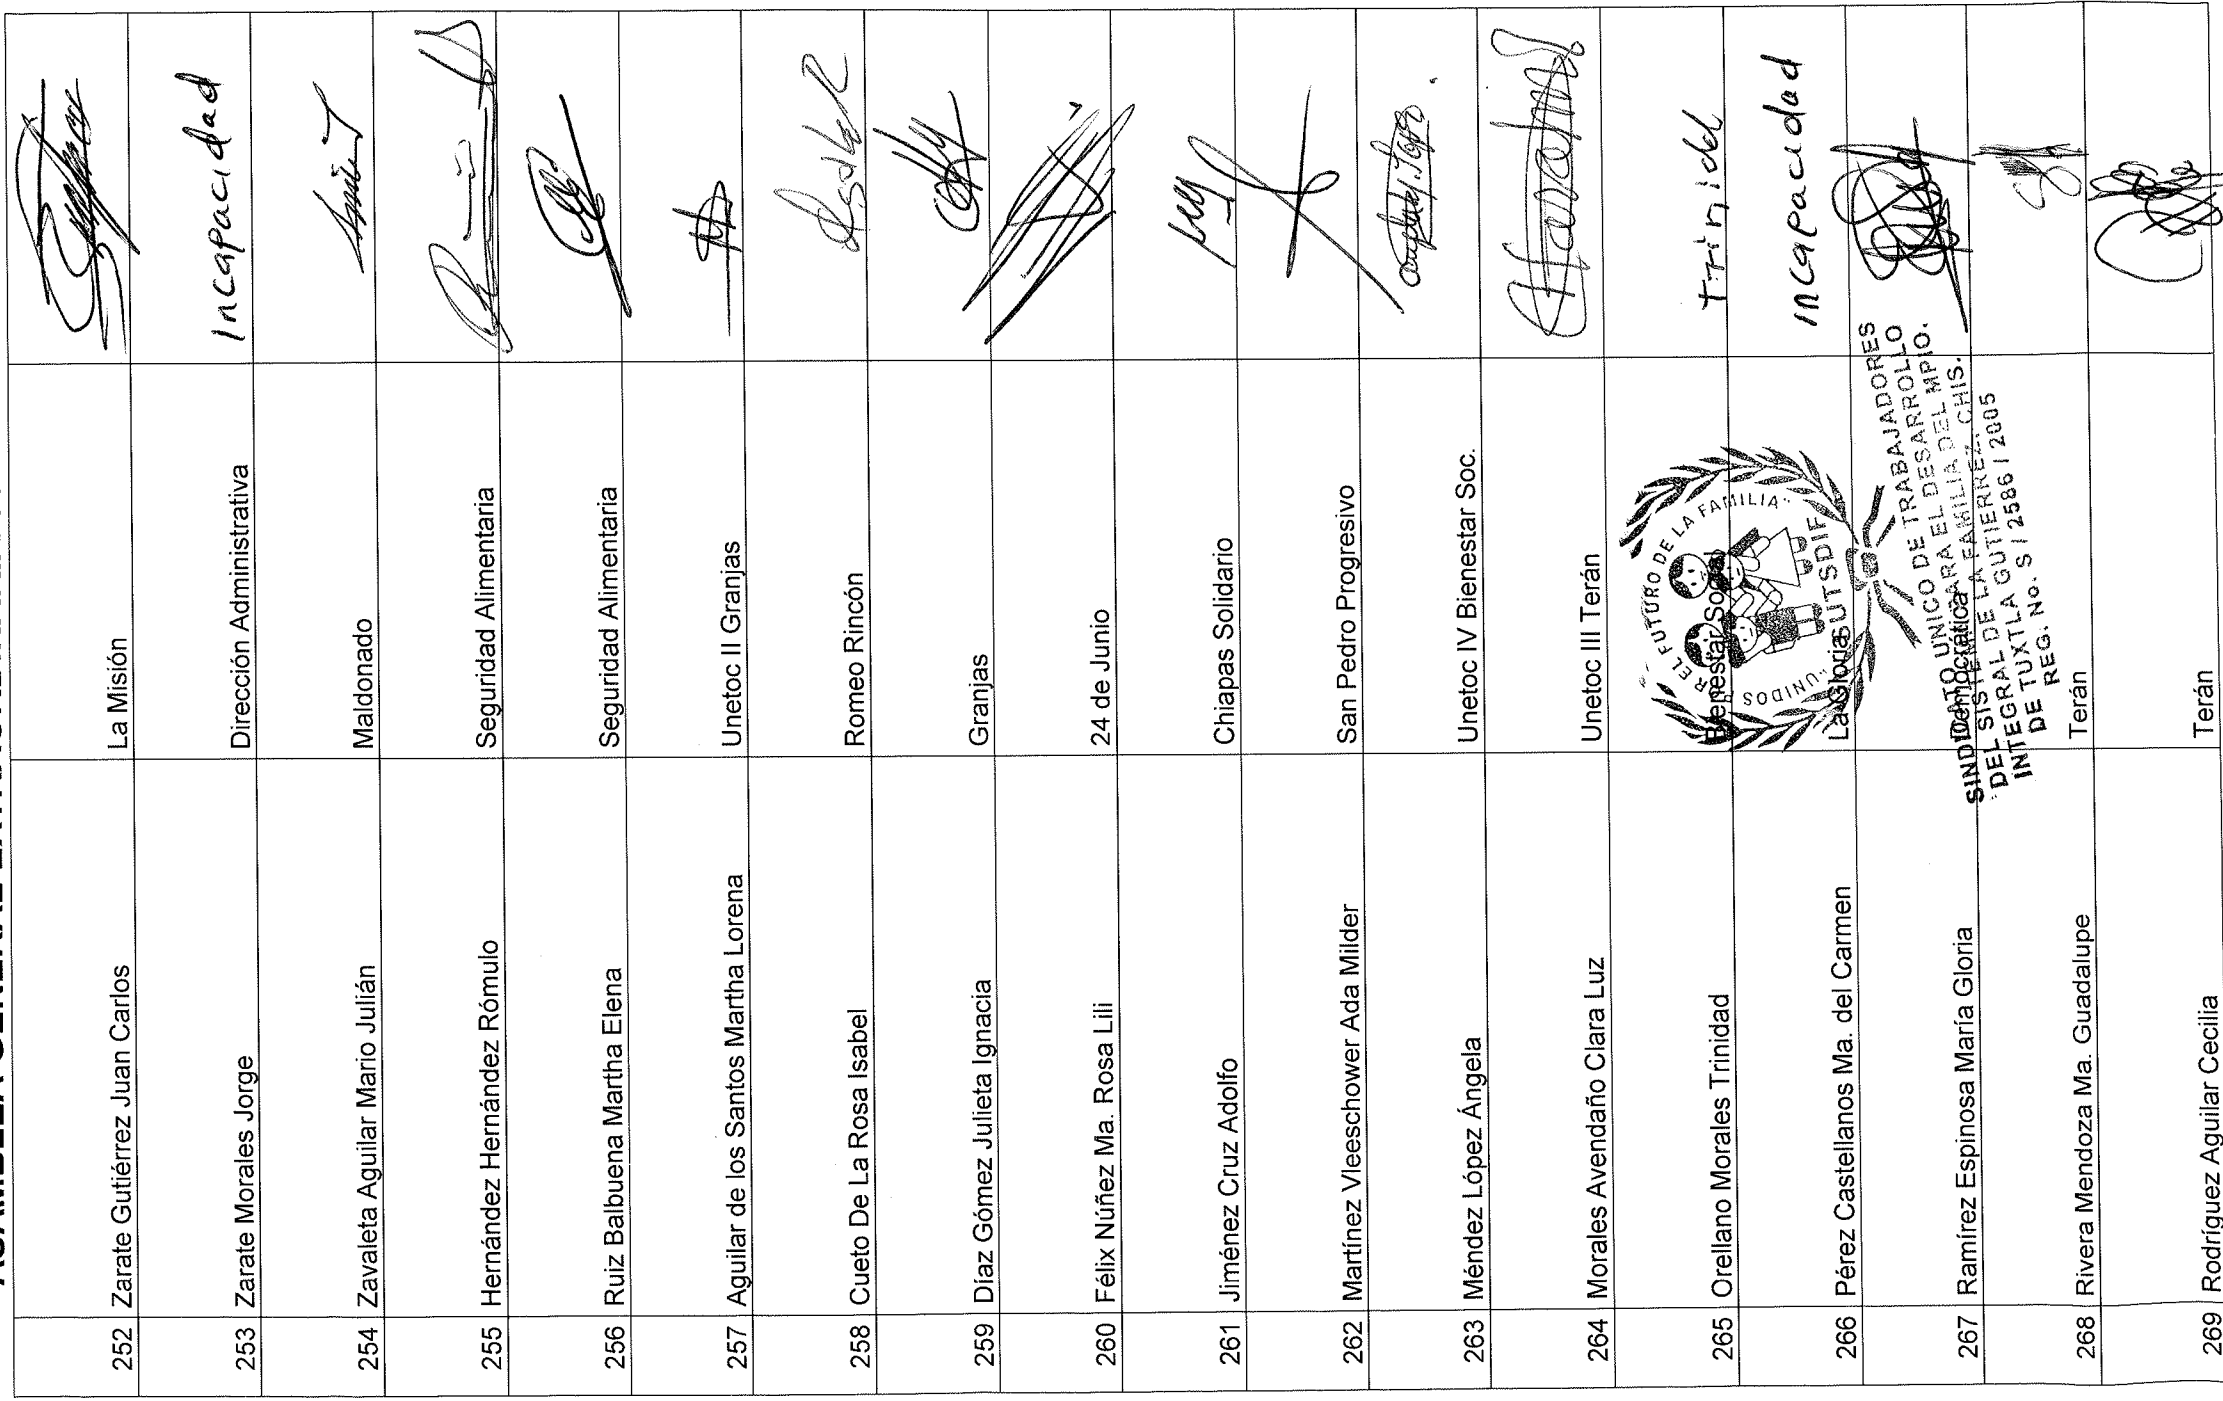 252 Zarate Gutiérrez Juan Carlos La Misión
253 Zarate Morales Jorge Dirección Administrativa Incapacidad
254 Zavaleta Aguilar Mario Julián Maldonado
255 Hernández Hernández Rómulo Seguridad Alimentaria
256 Ruiz Balbuena Martha Elena Seguridad Alimentaria
257 Aguilar de los Santos Martha Lorena Unetoc II Granjas
258 Cueto De La Rosa Isabel Romeo Rincón
259 Díaz Gómez Julieta Ignacia Granjas
260 Félix Núñez Ma. Rosa Lili 24 de Junio
261 Jiménez Cruz Adolfo Chiapas Solidario
262 Martínez Vleeschower Ada Milder San Pedro Progresivo
263 Méndez López Ángela Unetoc IV Bienestar Soc.
264 Morales Avendaño Clara Luz Unetoc III Terán
265 Orellano Morales Trinidad Bienestar Social trinidd
266 Pérez Castellanos Ma. del Carmen La Gloria incapacidad
267 Ramírez Espinosa María Gloria Democrática
268 Rivera Mendoza Ma. Guadalupe Terán
269 Rodríguez Aguilar Cecilia Terán
"UNIDOS P R EL FUTURO DE LA FAMILIA"
SUTSDIF
SINDICATO UNICO DE TRABAJADORES
DEL SIST PARA EL DESARROLLO
INTEGRAL DE LA FAMILIA DEL MPIO.
DE TUXTLA GUTIERREZ, CHIS.
REG. No. S / 2586 / 2005